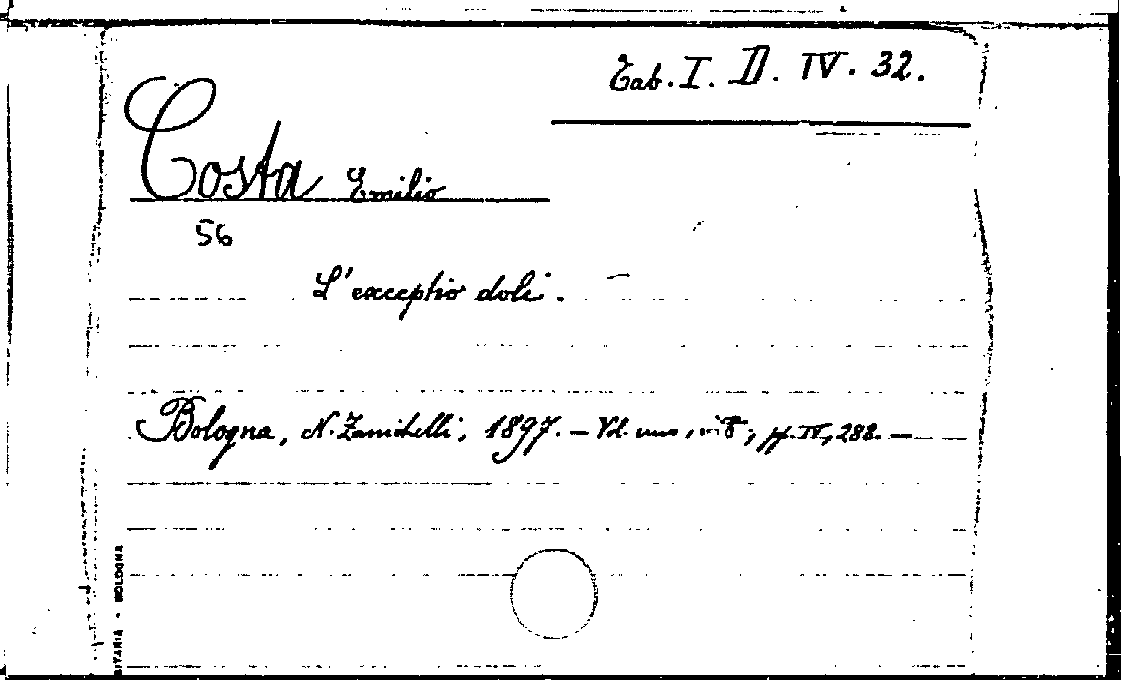 Tab. I. D. IV. 32.
Costa Emilio
56
L'exceptio doli.
Bologna, N. Zanichelli, 1897. - Vol. uno, in 8°; pp. IV, 288. -
SITARIA - BOLOGNA